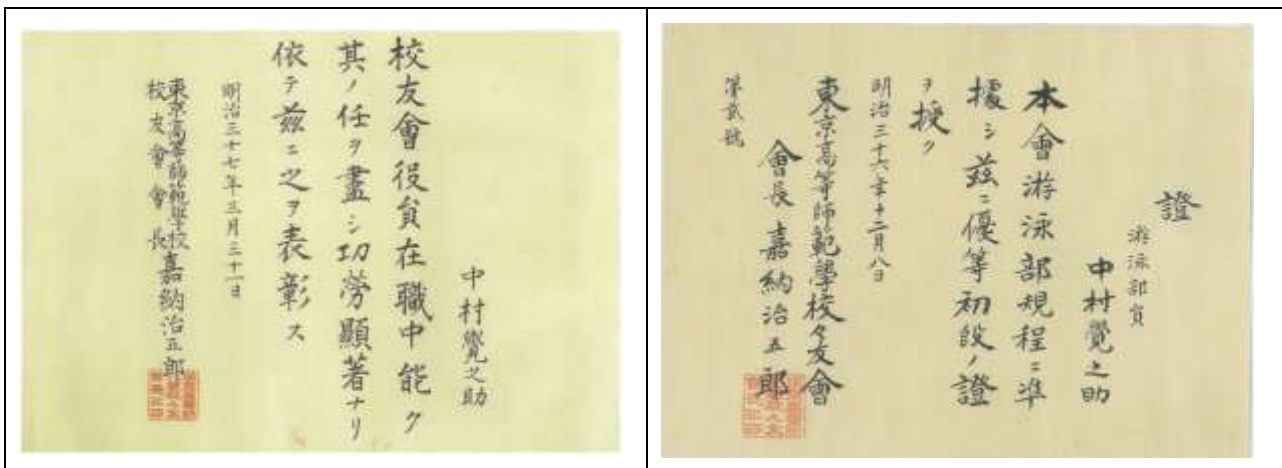 中村覺之助
校友會役員在職中能ク
其ノ任ヲ盡シ功勞顯著ナリ
依テ茲ニ之ヲ表彰ス
明治三十七年三月三十一日
東京高等師範學校
校友會會長嘉納治五郎
證
游泳部員
中村覺之助
本會游泳部規程ニ準
據シ茲ニ優等初段ノ證
ヲ授ク
明治三十六年十二月八日
東京高等師範學校々友會
會長嘉納治五郎
第貳號